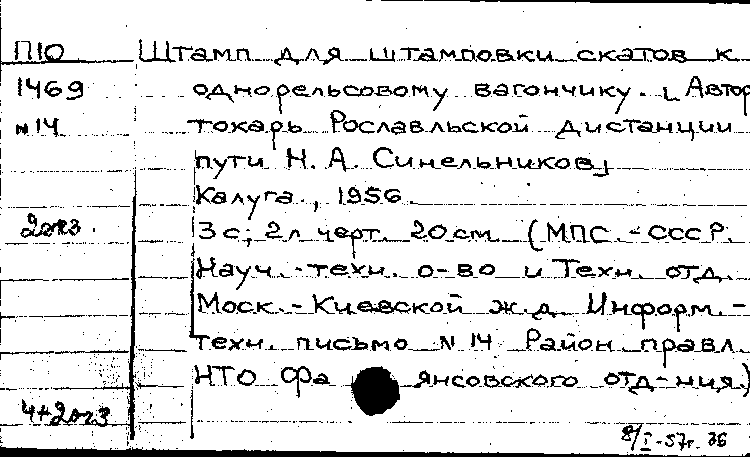 П10 Штамп для штамповки скатов к
1469 однорельсовому вагончику. [Автор
N14 токарь Рославльской дистанции
пути Н. А. Синельников]
Калуга, 1956.
2экз. 3 с; 2л черт. 20см (МПС.-СССР.
Науч.-техн. о-во и Техн. отд.
Моск.-Киевской ж.д. Информ.-
техн. письмо N 14 Район. правл.
НТО Фа янсовского отд-ния.)
8/I-57г. 36